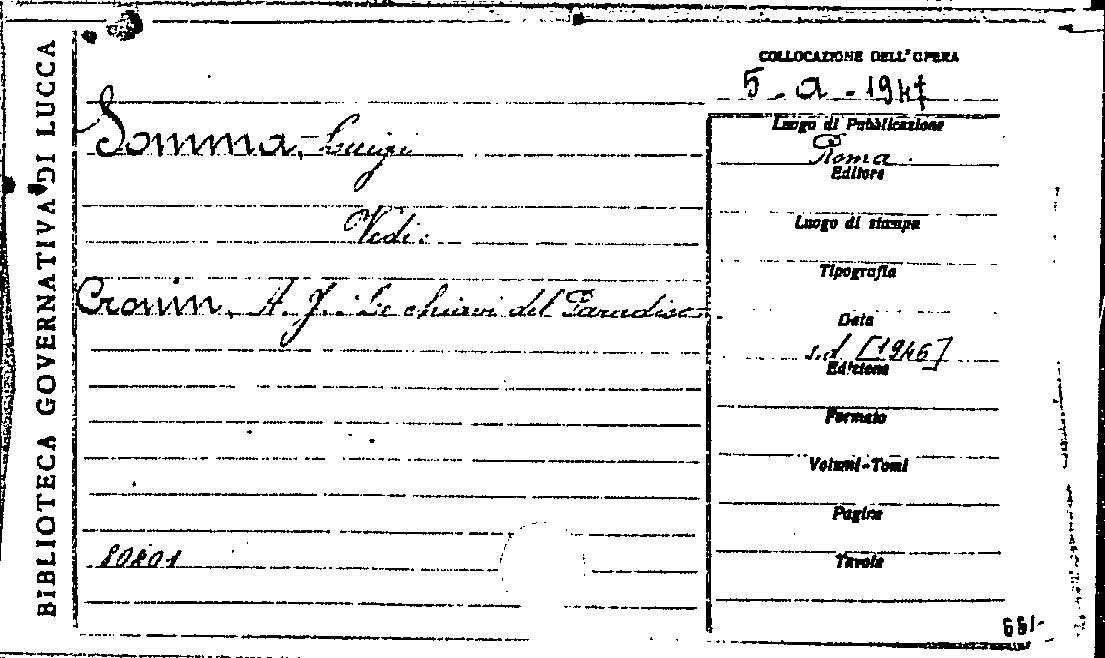 BIBLIOTECA GOVERNATIVA DI LUCCA
COLLOCAZIONE DELL'OPERA
5 - a - 1947
Somma, Luigi
Vedi:
Cronin, A. J.: Le chiavi del Paradiso
80201
Luogo di Pubblicazione
Roma
Editore
Luogo di stampa
Tipografia
Data
s.d [1946]
Edizione
Formato
Volumi-Tomi
Pagine
Tavole